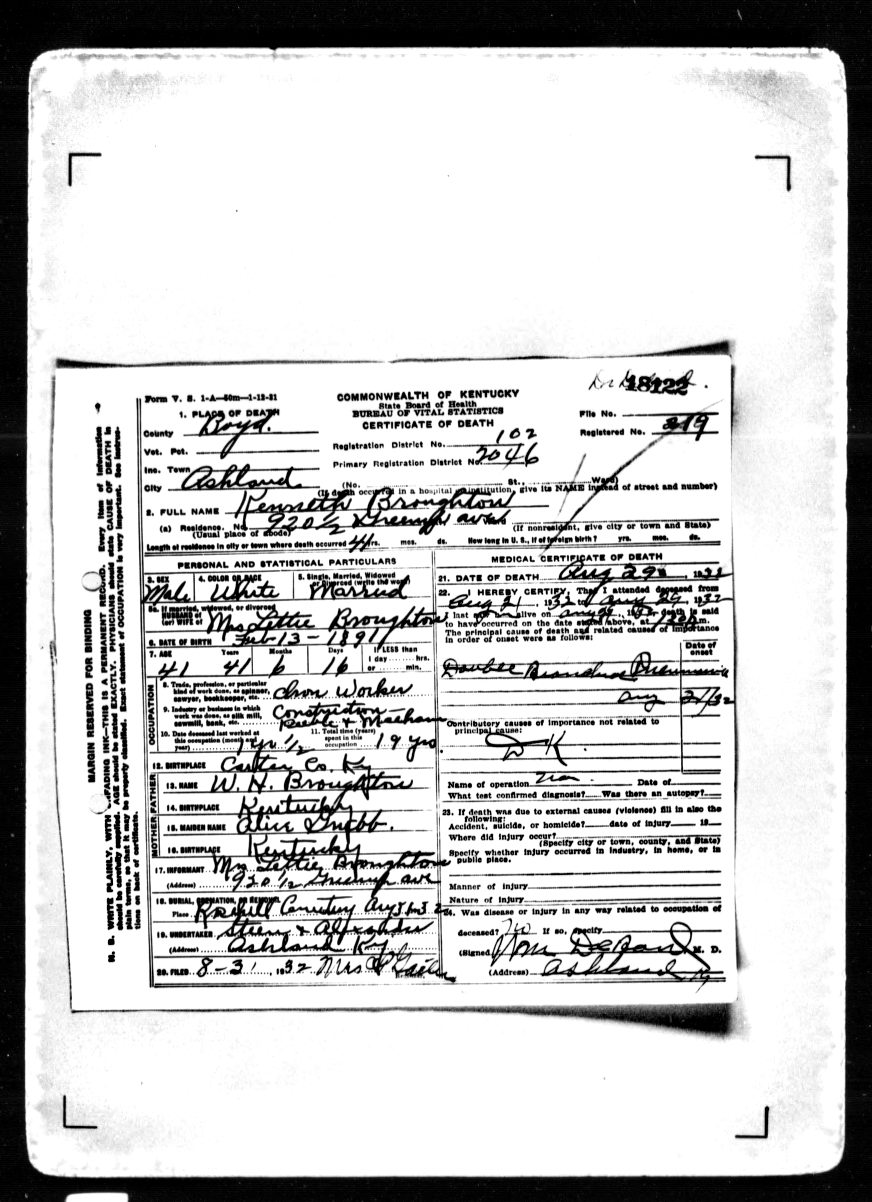 18122
Form V. S. 1-A—50m—1-12-31
COMMONWEALTH OF KENTUCKY
State Board of Health
BUREAU OF VITAL STATISTICS
CERTIFICATE OF DEATH
File No.
Registered No. 319
1. PLACE OF DEATH
County Boyd.
Vot. Pct.
Inc. Town
City Ashland
Registration District No. 102
Primary Registration District No. 2046
(No. St., Ward)
(If death occurred in a hospital or institution, give its NAME instead of street and number)
2. FULL NAME Kenneth Broughton
(a) Residence. No. 920 1/2 Greenup ave
(Usual place of abode)
(If nonresident, give city or town and State)
Length of residence in city or town where death occurred 41 yrs. mos. ds. How long in U. S., if of foreign birth? yrs. mos. ds.
PERSONAL AND STATISTICAL PARTICULARS
3. SEX 4. COLOR OR RACE 5. Single, Married, Widowed
or Divorced (write the word)
Male White Married
5a. If married, widowed, or divorced
HUSBAND of
(or) WIFE of Mrs Lettie Broughton
6. DATE OF BIRTH Feb 13 - 1891
7. AGE Years Months Days If LESS than
1 day hrs.
or min.
41 41 6 16
OCCUPATION
8. Trade, profession, or particular
kind of work done, as spinner,
sawyer, bookkeeper, etc. Iron Worker
9. Industry or business in which
work was done, as silk mill,
sawmill, bank, etc. Construction
10. Date deceased last worked at
this occupation (month and
year) 1 yr 1/2
11. Total time (years)
spent in this
occupation 19 yrs
12. BIRTHPLACE Carter Co. Ky
FATHER
13. NAME W. H. Broughton
14. BIRTHPLACE Kentucky
MOTHER
15. MAIDEN NAME Alice Grubb.
16. BIRTHPLACE Kentucky
17. INFORMANT Mrs Lettie Broughton
(Address) 920 1/2 Greenup ave
18. BURIAL, CREMATION, OR REMOVAL
Place Rosehill Cemetery Aug 31 1932
19. UNDERTAKER Steen & Alexander
(Address) Ashland Ky
20. FILED 8-31, 1932 Mrs
MEDICAL CERTIFICATE OF DEATH
21. DATE OF DEATH Aug 29 1932
22. I HEREBY CERTIFY, That I attended deceased from
Aug 21, 1932 to Aug 29, 1932
I last saw him alive on Aug 29, 1932 death is said
to have occurred on the date stated above, at m.
The principal cause of death and related causes of importance
in order of onset were as follows:
Date of
onset
Double Bronchial Pneumonia
Aug 21/32
Contributory causes of importance not related to
principal cause:
D K
Name of operation Date of
What test confirmed diagnosis? Was there an autopsy?
23. If death was due to external causes (violence) fill in also the
following:
Accident, suicide, or homicide? date of injury 19
Where did injury occur?
(Specify city or town, county, and State)
Specify whether injury occurred in industry, in home, or in
public place.
Manner of injury
Nature of injury
24. Was disease or injury in any way related to occupation of
deceased? No If so, specify
(Signed) M. D.
(Address) Ashland Ky
MARGIN RESERVED FOR BINDING
N. B. WRITE PLAINLY, WITH UNFADING INK—THIS IS A PERMANENT RECORD. Every item of information
should be carefully supplied. AGE should be stated EXACTLY. PHYSICIANS should state CAUSE OF DEATH in
plain terms, so that it may be properly classified. Exact statement of OCCUPATION is very important. See instruc-
tions on back of certificate.